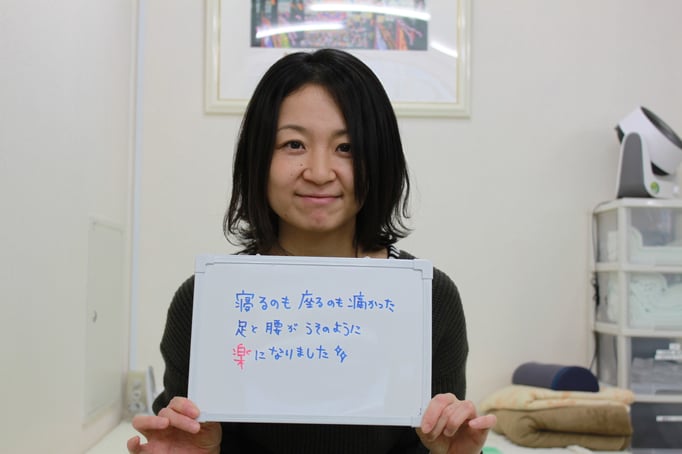 寝るのも 座るのも 痛かった
足と 腰が うそのように
楽になりました